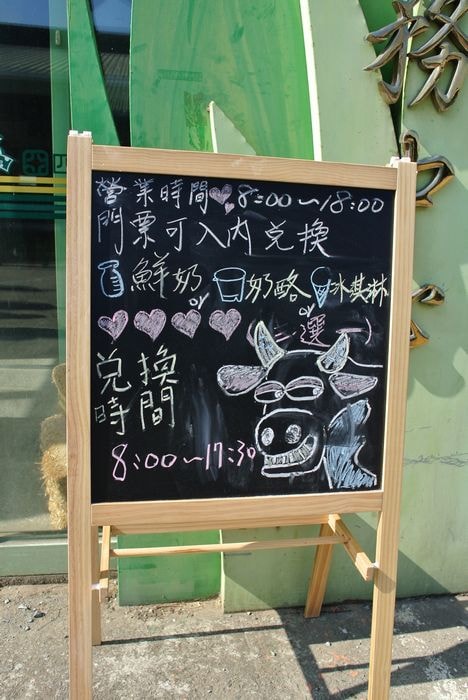 營業時間 8:00~18:00
門票可入內兌換
鮮奶 or 奶酪 or 冰淇淋
(三選一)
兌換
時間
8:00~17:30